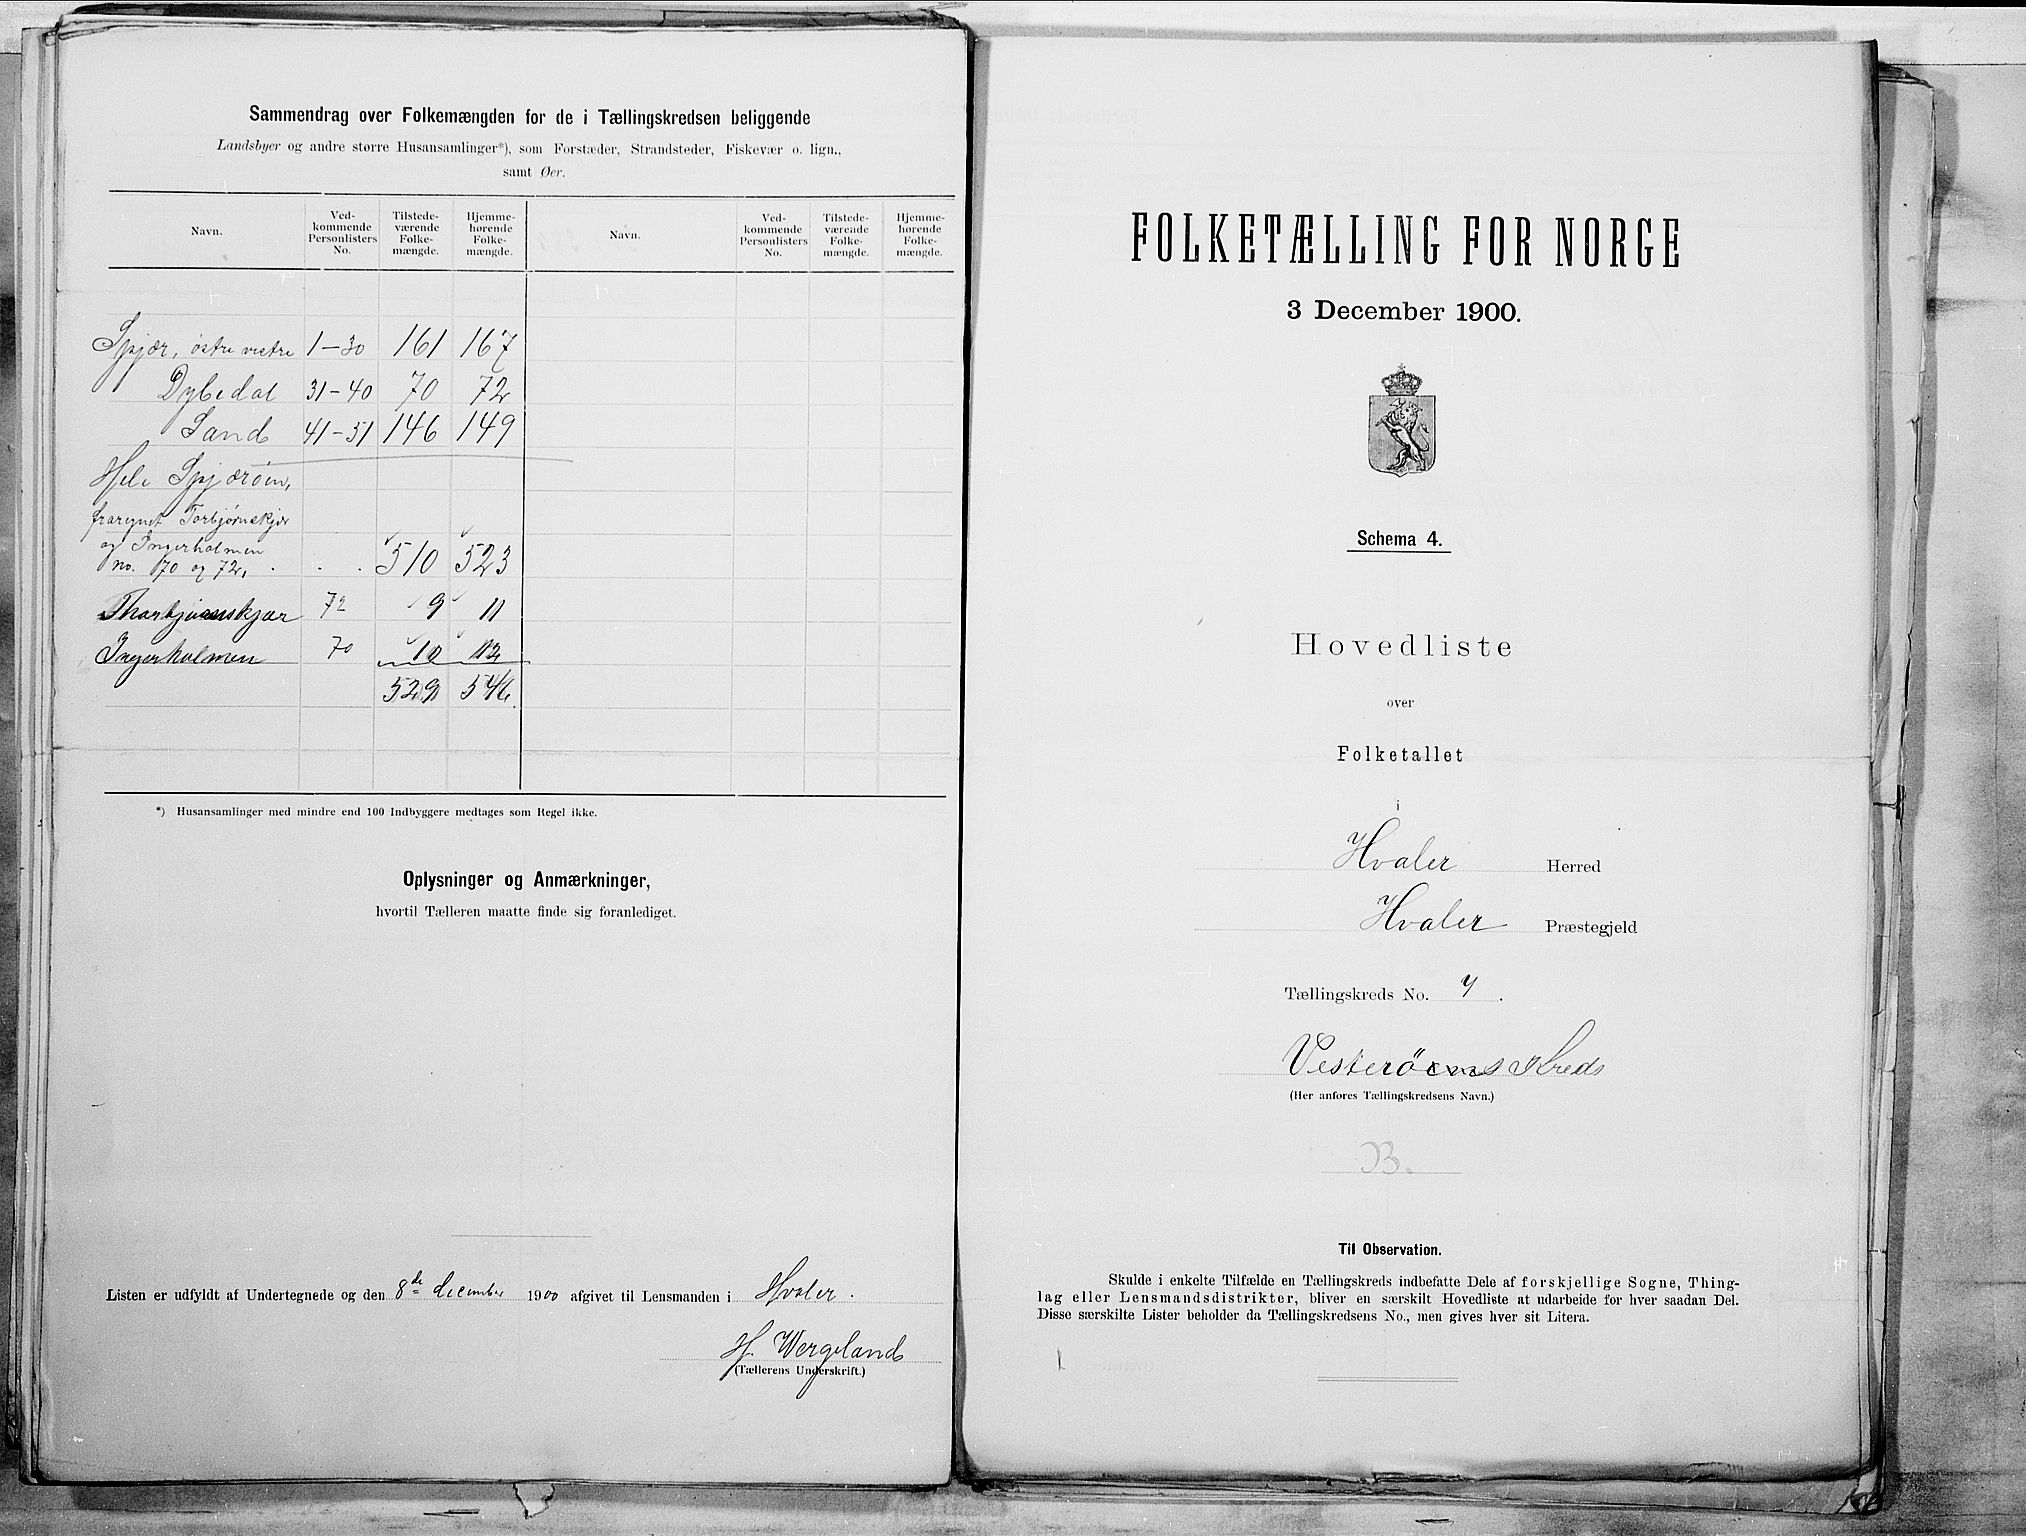 Sammendrag over Folkemængden for de i Tællingskredsen beliggende
Landsbyer og andre større Husansamlinger*), som Forstæder, Strandsteder, Fiskevær o. lign.,
samt Øer.
Navn. Vedkommende Personlisters No. Tilstedeværende Folkemængde. Hjemmehørende Folkemængde. Navn. Vedkommende Personlisters No. Tilstedeværende Folkemængde. Hjemmehørende Folkemængde.
Spjær, østre vestre 1-30 161 167
Dybedal 31-40 70 72
Sand 41-51 146 149
Hele Spjærøen,
fraregnet Torbjørnskjær
og Ingerholmen
no. 70 og 72, . . . 510 523
Thorbjørnskjær 72 9 11
Ingerholmen 70 10 12
529 546.
*) Husansamlinger med mindre end 100 Indbyggere medtages som Regel ikke.
Oplysninger og Anmærkninger,
hvortil Tælleren maatte finde sig foranlediget.
Listen er udfyldt af Undertegnede og den 8de december 1900 afgivet til Lensmanden i Hvaler.
H. Wergeland
(Tællerens Underskrift.)
FOLKETÆLLING FOR NORGE
3 December 1900.
Schema 4.
Hovedliste
over
Folketallet
i
Hvaler Herred
Hvaler Præstegjeld
Tællingskreds No. 7.
Vesteröens Kreds
(Her anføres Tællingskredsens Navn.)
B.
Til Observation.
Skulde i enkelte Tilfælde en Tællingskreds indbefatte Dele af forskjellige Sogne, Thing-
lag eller Lensmandsdistrikter, bliver en særskilt Hovedliste at udarbeide for hver saadan Del.
Disse særskilte Lister beholder da Tællingskredsens No., men gives hver sit Litera.